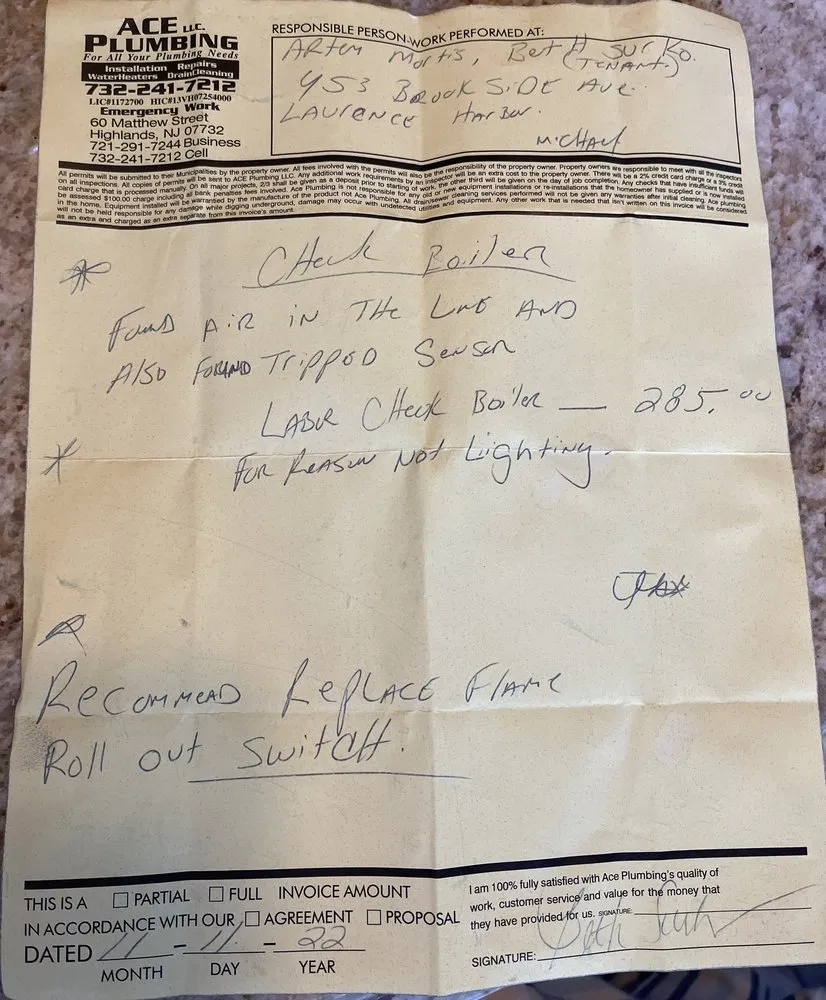 ACE LLC.
PLUMBING
For All Your Plumbing Needs
Installation Repairs
WaterHeaters DrainCleaning
732-241-7212
LIC#1172700 HIC#13VH07254000
Emergency Work
60 Matthew Street
Highlands, NJ 07732
721-291-7244 Business
732-241-7212 Cell
RESPONSIBLE PERSON-WORK PERFORMED AT:
(TENANT)
953 BROOK SIDE AVE.
LAURENCE HARBOR.
MICHAEL
All permits will be submitted to their Municipalities by the property owner. All fees involved with the permits will also be the responsibility of the property owner. Property owners are responsible to meet with all the inspectors
on all inspections. All copies of permits will be sent to ACE Plumbing LLC. Any additional work requirements by an inspector will be an extra cost to the property owner. There will be a 2% credit card charge or a 3% credit
card charge that is processed manually. On all major projects, 2/3 shall be given as a deposit prior to starting of work, the other third will be given on the day of job completion. Any checks that have insufficient funds will
be assessed $100.00 charge including all bank penalties fees involved. Ace Plumbing is not responsible for any old or new equipment installations or re-installations that the homeowner has supplied or is now installed
in the home. Equipment installed will be warrantied by the manufacture of the product not Ace Plumbing. All drain/sewer cleaning services performed will not be given any warranties after initial cleaning. Ace plumbing
will not be held responsible for any damage while digging underground, damage may occur with undetected utilities and equipment. Any other work that is needed that isn't written on this invoice will be considered
as an extra and charged as an extra separate from this invoice's amount.
* CHeck Boiler
FOUND AIR IN THE LINE AND
Also FOUND TRIPPED Sensor
LABOR CHeck Boiler — 285.00
* FOR REASON NOT Lighting.
RECOMMEAD REPLACE FLAME
Roll out SWITCH.
THIS IS A PARTIAL FULL INVOICE AMOUNT
IN ACCORDANCE WITH OUR AGREEMENT PROPOSAL
DATED 11 - 11 - 22
MONTH DAY YEAR
I am 100% fully satisfied with Ace Plumbing's quality of
work, customer service and value for the money that
they have provided for us. SIGNATURE:
SIGNATURE: